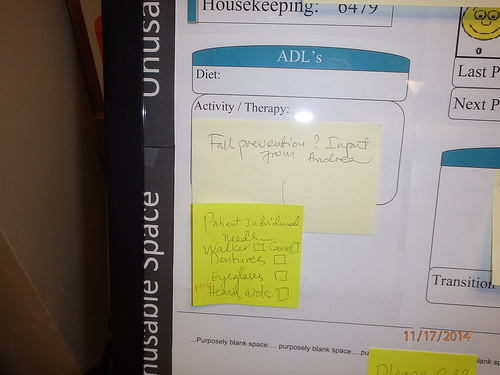 Housekeeping: 6479
ADL's
Diet:
Activity / Therapy:
Fall prevention? Input
from Andrea
Patient Individual
needs
Walker Cane
Dentures
Eyeglasses
Hearing aids
0
Last P
Next P
Transition
Unusa
nusable Space
...Purposely blank space.... purposely blank space....pu
lank sp
Please Call
11/17/2014